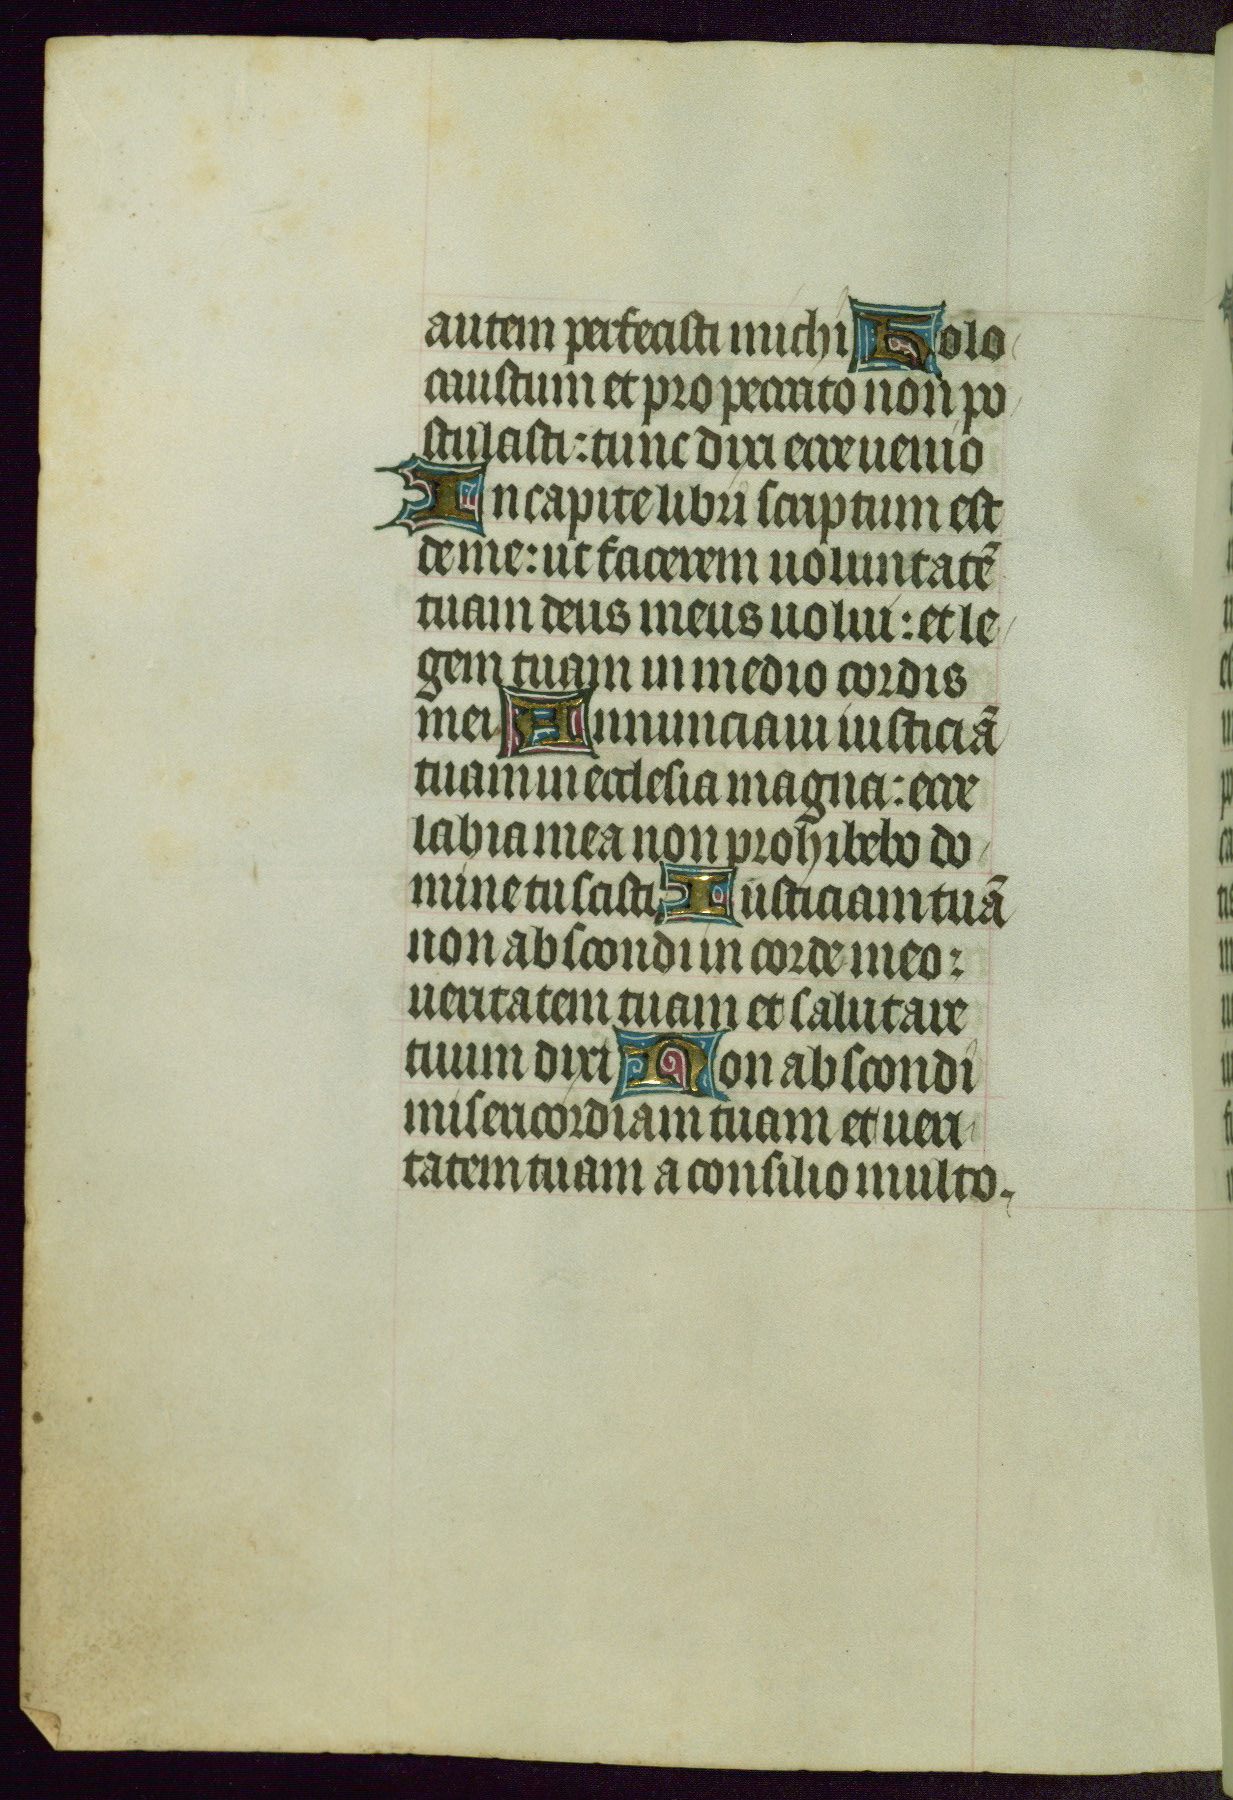 autem perfecisti michi Holo
caustum et pro peccato non po
stulasti: tunc dixi ecce uenio
In capite libri scriptum est
de me: ut facerem uoluntatē
tuam deus meus uolui: et le
gem tuam in medio cordis
mei Annunciaui iusticiā
tuam in ecclesia magna: ecce
labia mea non prohibebo do
mine tu scisti Iusticiam tuā
non abscondi in corde meo:
ueritatem tuam et salutare
tuum dixi Non abscondi
misericordiam tuam et ueri
tatem tuam a consilio multo.